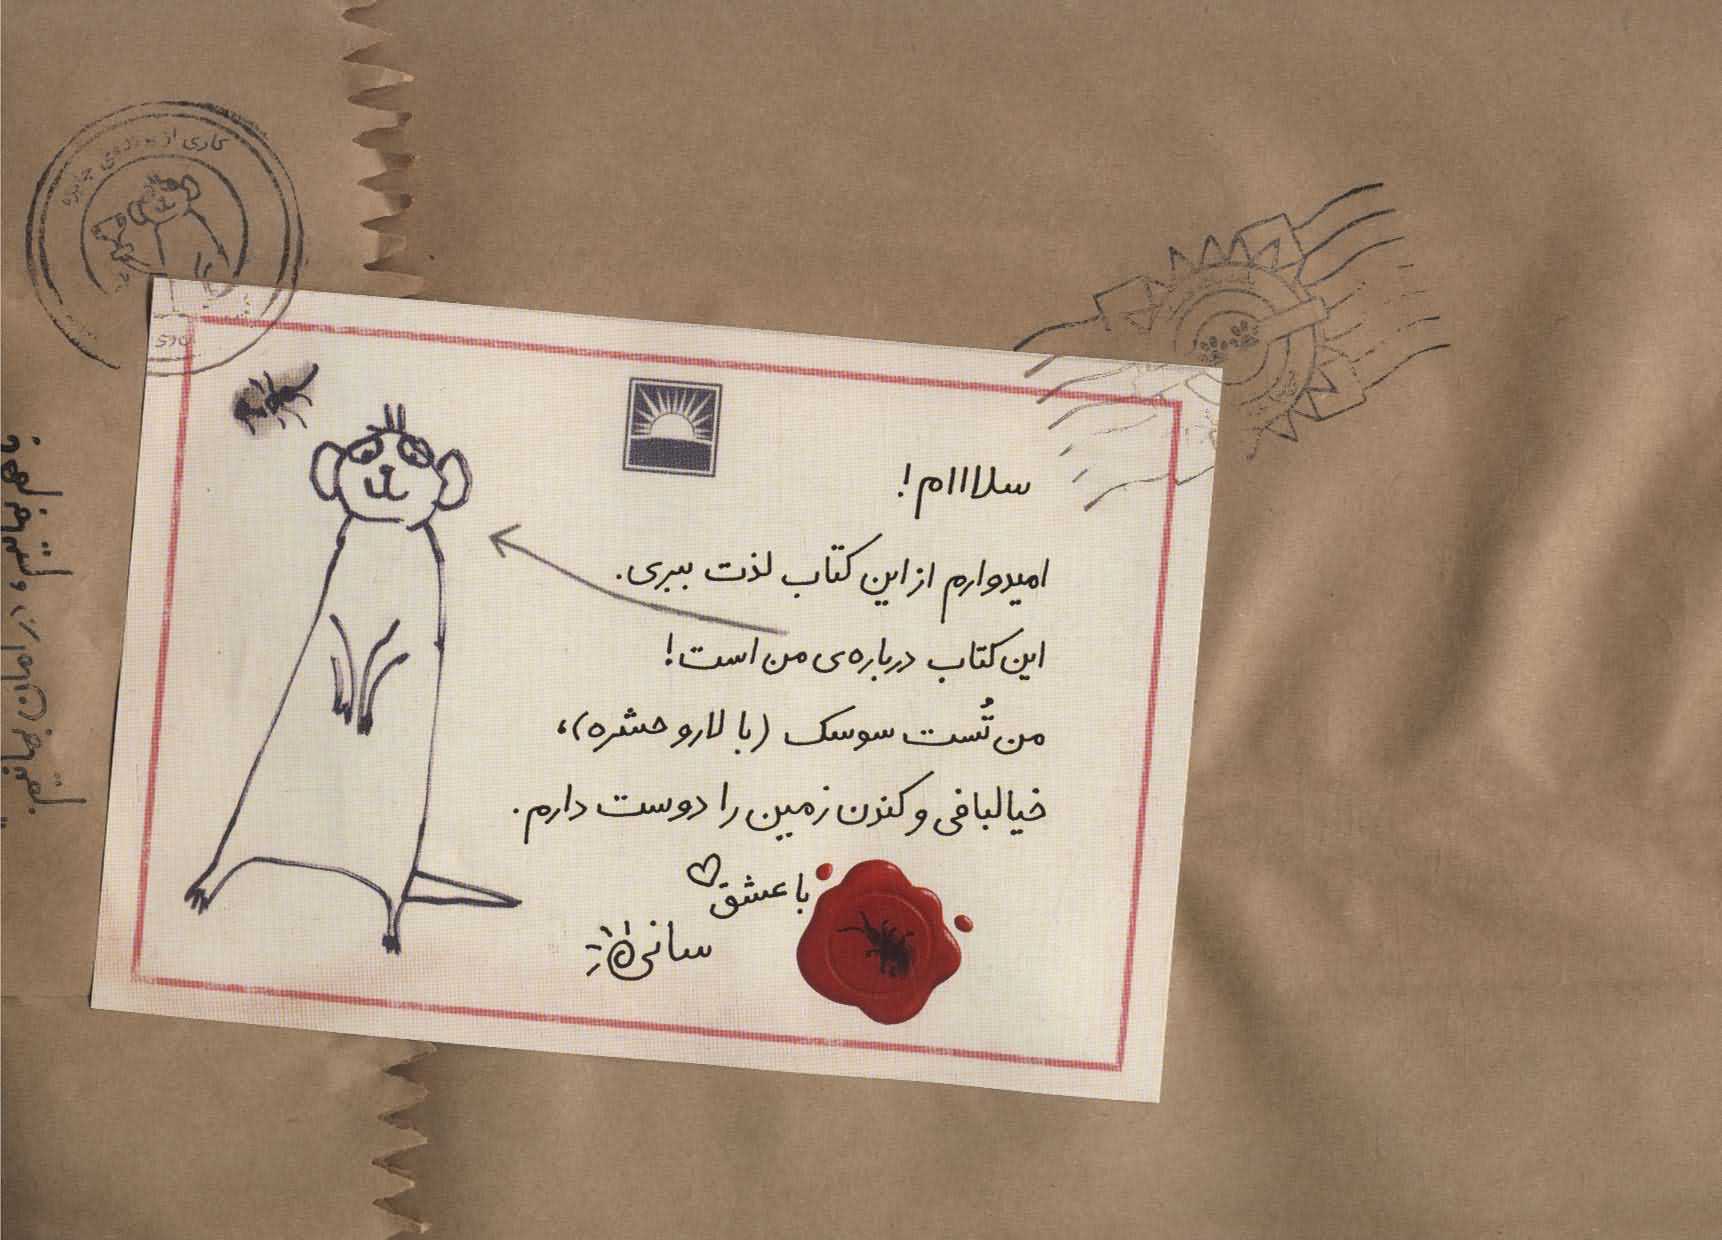 سلاااام!
امیدوارم از این کتاب لذت ببری.
این کتاب درباره‌ی من است!
من تُست سوسک (با لارو حشره)،
خیالبافی و کندن زمین را دوست دارم.
با عشق
سانی
کاری از
جایزه